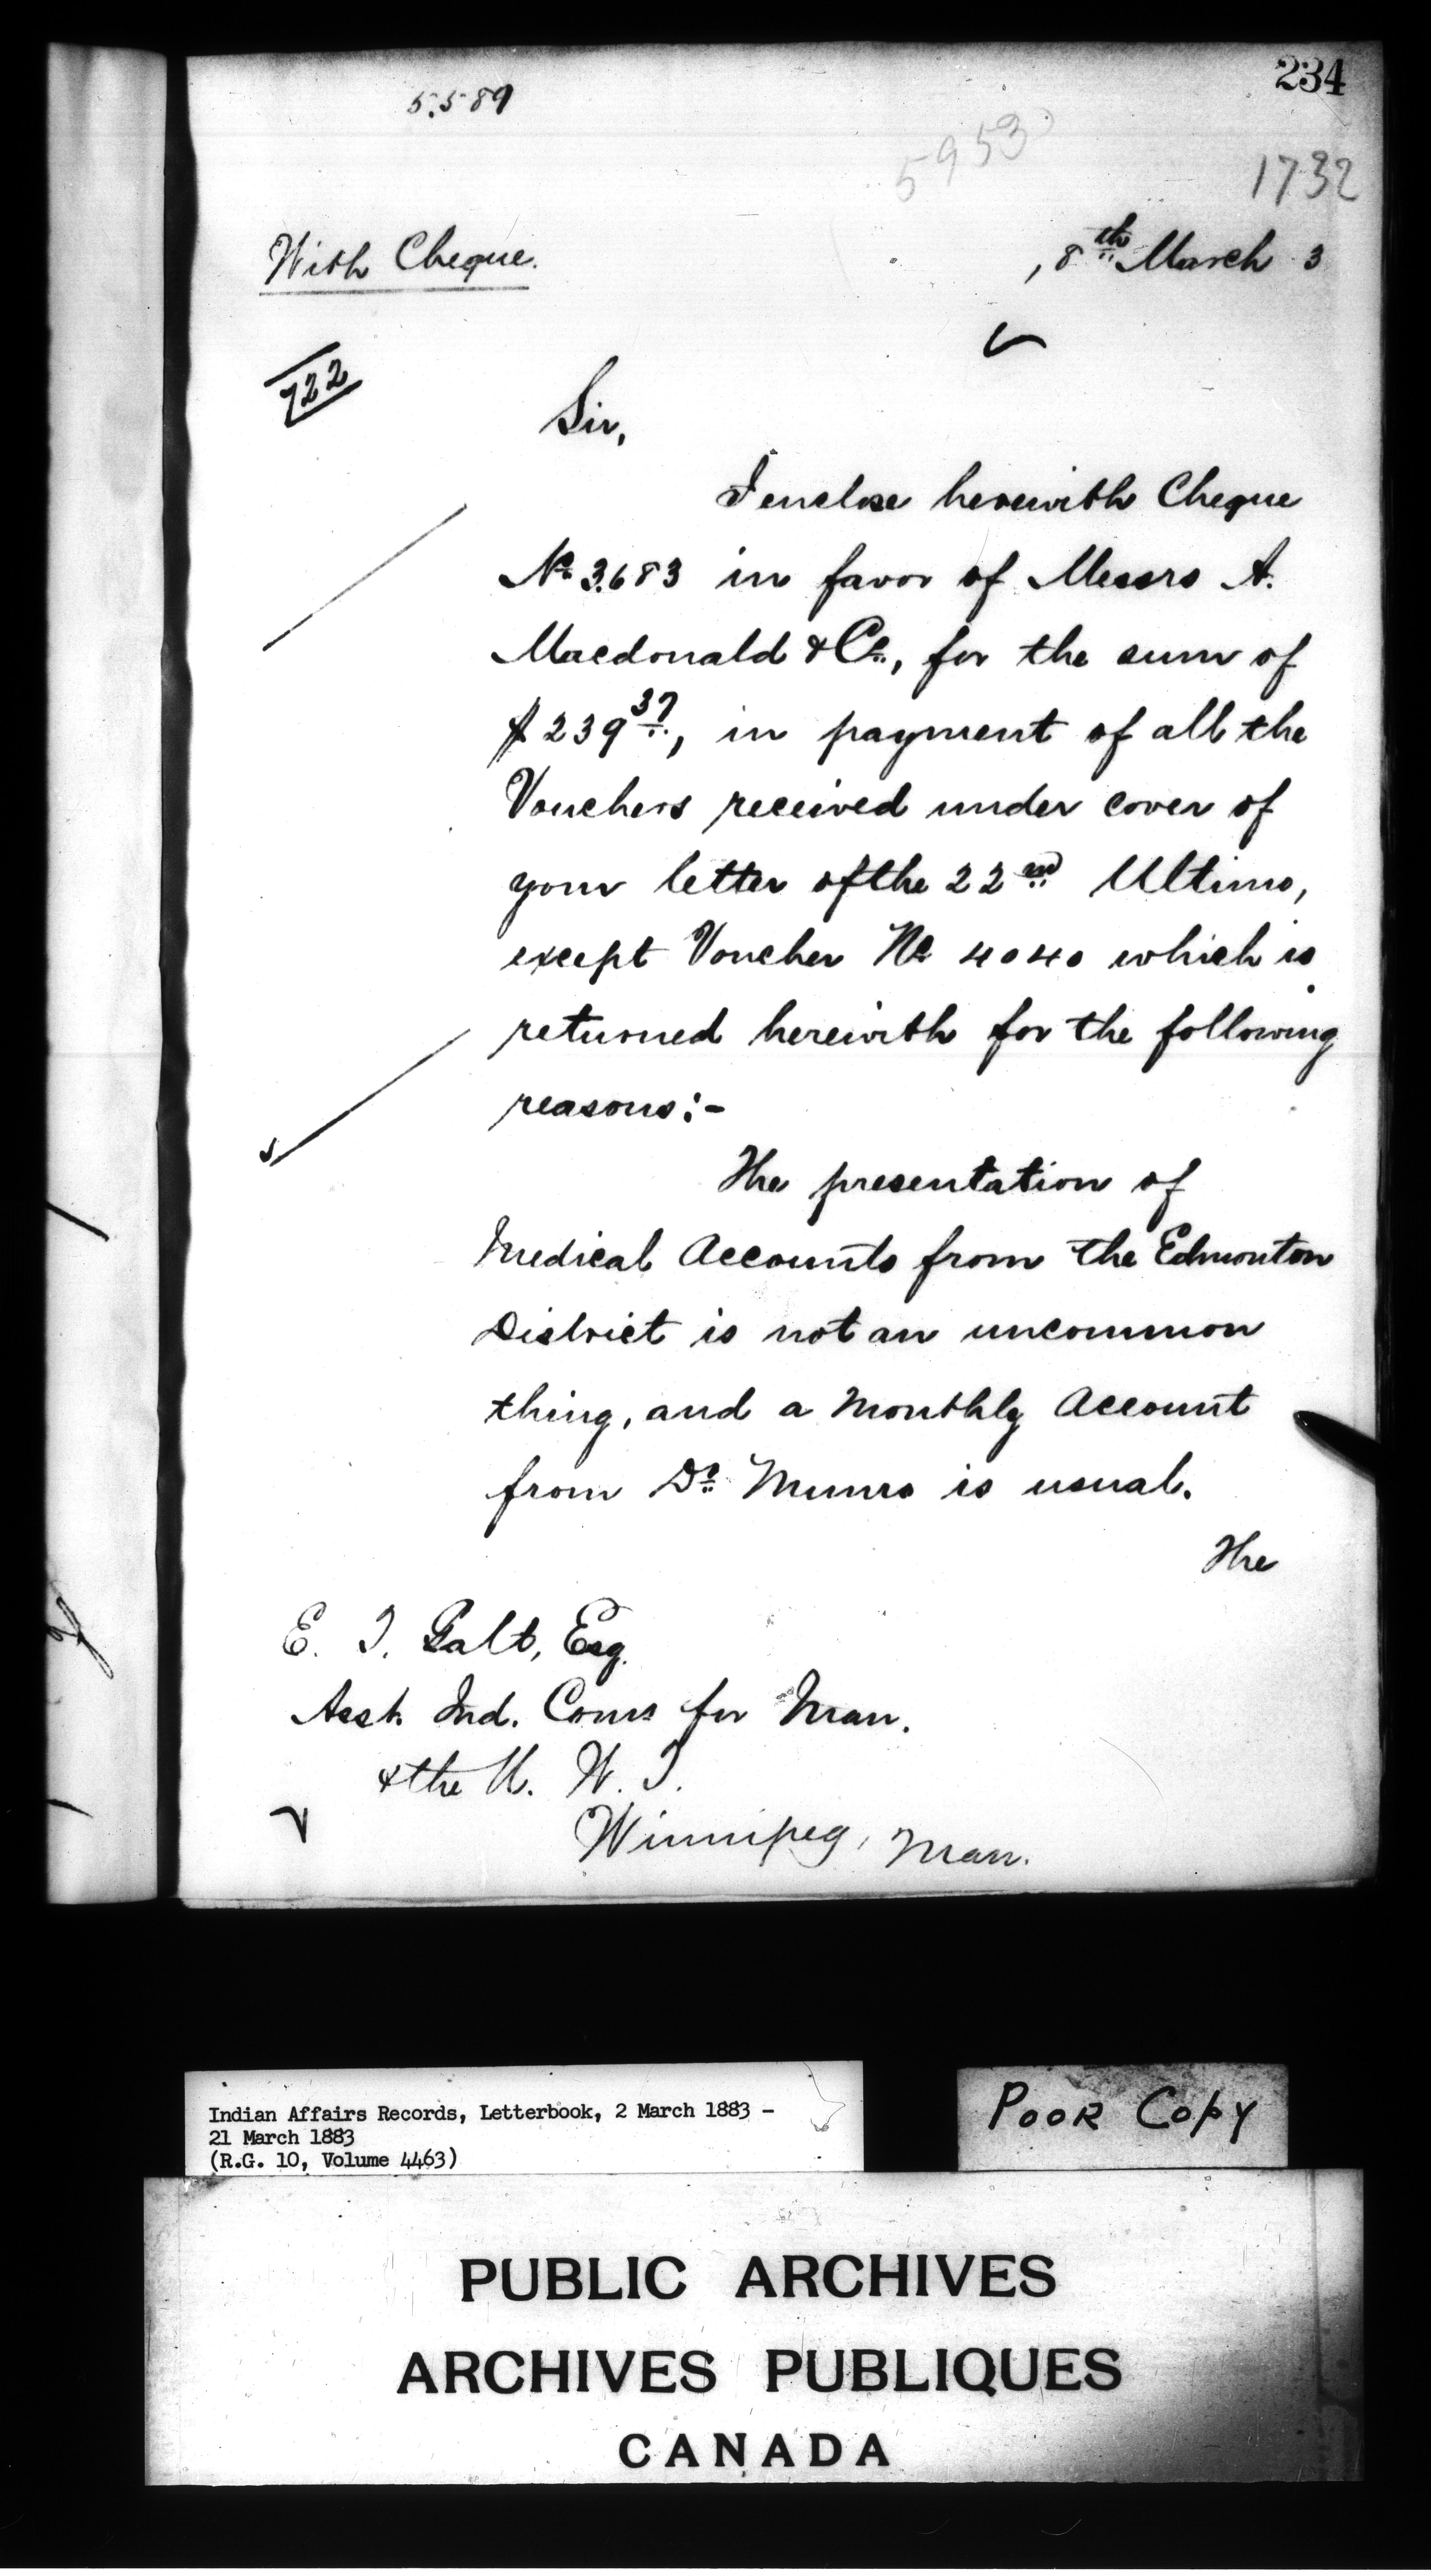 234
5.589
5953
1732
With Cheque.
, 8th March 3
722
Sir,
I enclose herewith Cheque
No 3.683 in favor of Messrs A.
Macdonald & Co., for the sum of
$239 37, in payment of all the
Vouchers received under cover of
your letter of the 22nd Ultimo,
except Voucher No 4040 which is
returned herewith for the following
reasons:-
The presentation of
Medical Accounts from the Edmonton
District is not an uncommon
thing, and a Monthly Account
from Dr Munro is usual.
The
E. T. Galt, Esq.
Asst. Ind. Comr for Man.
& the N. W. T.
Winnipeg, Man.
Indian Affairs Records, Letterbook, 2 March 1883 -
21 March 1883
(R.G. 10, Volume 4463)
POOR COPY
PUBLIC ARCHIVES
ARCHIVES PUBLIQUES
CANADA